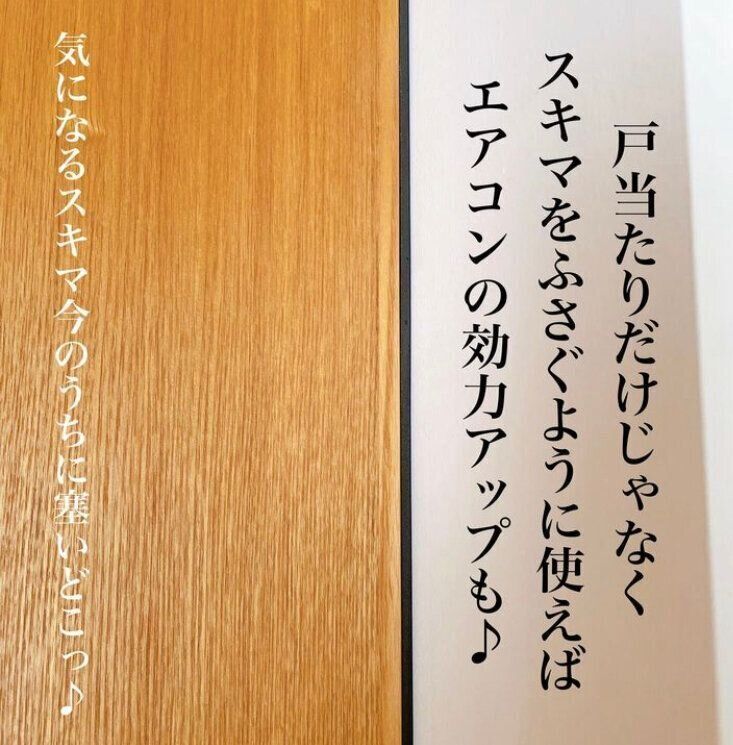 戸当たりだけじゃなく
スキマをふさぐように使えば
エアコンの効力アップも♪
気になるスキマ今のうちに塞いどこっ♪